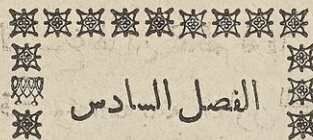 الفصل السادس